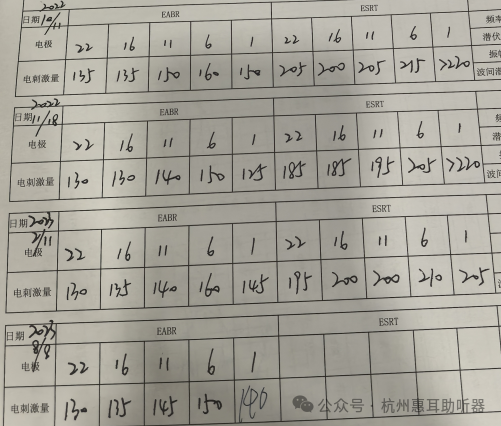 2022
日期 10/11 EABR ESRT 频率
电极 22 16 11 6 1 22 16 11 6 1 潜伏
电刺激量 135 135 150 160 150 205 200 205 215 >220 波间潜
2022
日期 11/18 EABR ESRT
电极 22 16 11 6 1 22 16 11 6 1
电刺激量 130 130 140 150 125 185 185 195 205 >220 波间
日期 2023 EABR ESRT
电极 22 16 11 6 1 22 16 11 6 1
电刺激量 130 135 140 160 145 195 200 200 210 205
日期 2023 EABR ESRT
8/8
电极 22 16 11 6 1
电刺激量 130 135 145 150
公众号·杭州惠耳助听器